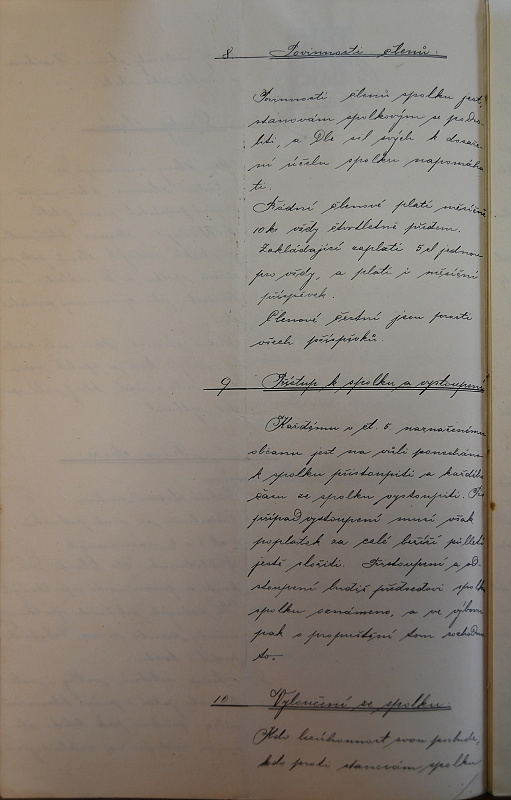 8 Povinnosti členů:
Povinností členů spolku jest,
stanovám spolkovým se podro-
biti, a Dle sil svých k dosaže-
ní účelu spolku napomáha
ti.
Řádní členové platí měsíčně
10 kr vždy čtvrtletně předem.
Zakládající zaplatí 5 zl jednou
pro vždy, a platí i měsíční
příspěvek.
Členové čestní jsou prosti
všech příspěvků.
9 Přístup k spolku a vystoupení
Každému v čl. 5 naznačenému
občanu jest na vůli ponecháno
k spolku přistoupiti a každého
času ze spolku vystoupiti.
případ vystoupení musí však
poplatek za celé běžící půlletí
ještě složiti. Přistoupení a od-
stoupení budiž předsedovi spolku
spolku oznámeno, a ve výboru
pak o propuštění tom rozhodnu
to.
10 Vyloučení ze spolku.
Kdo bezúhonnost svou pozbude,
kdo proti stanovám spolku